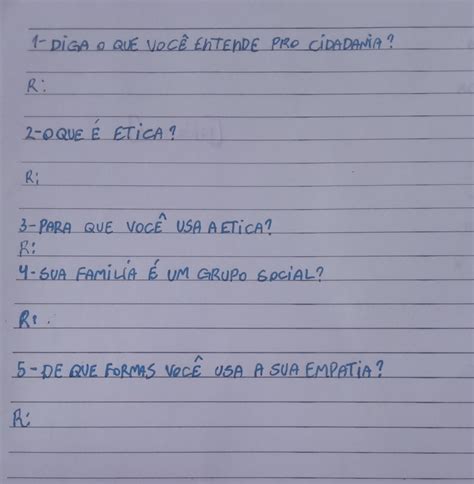 1- DIGA O QUE VOCÊ ENTENDE PRO CIDADANIA?
R:
2- O QUE É ETICA?
R:
3- PARA QUE VOCÊ USA A ETICA?
R:
4- SUA FAMILÍA É UM GRUPO SOCIAL?
R:.
5- DE QUE FORMAS VOCÊ USA A SUA EMPATIA?
R: